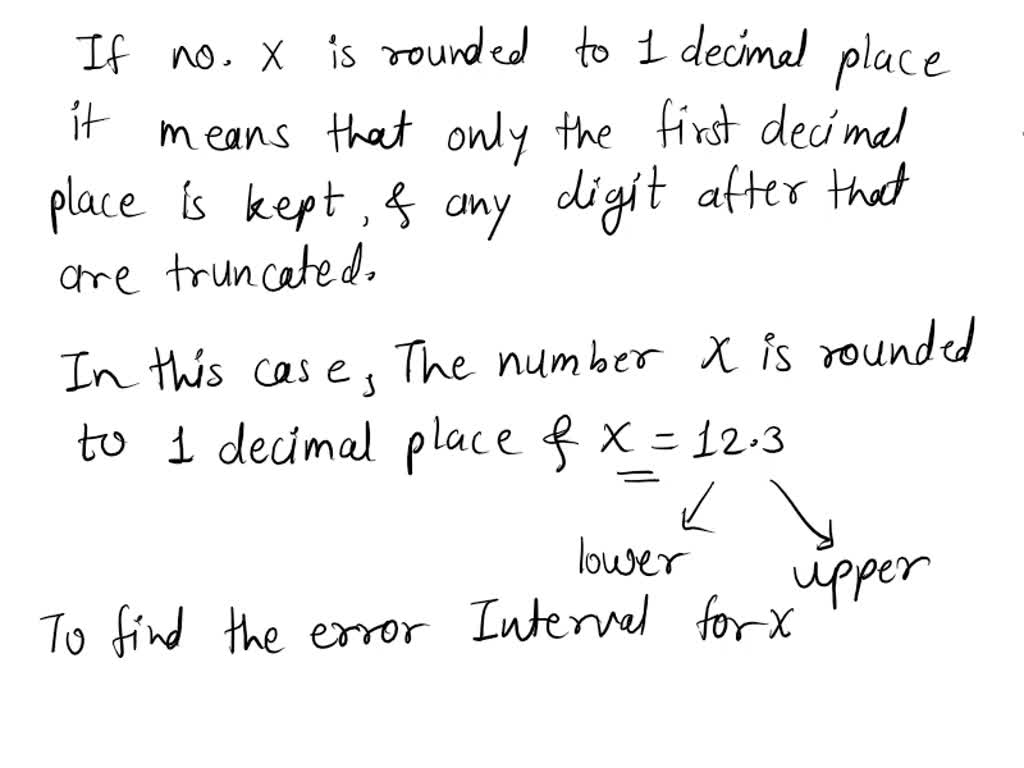 If no. x is rounded to 1 decimal place
it means that only the first decimal
place is kept, & any digit after that
are truncated.
In this case, The number x is rounded
to 1 decimal place & x = 12.3
lower upper
To find the error Interval for x